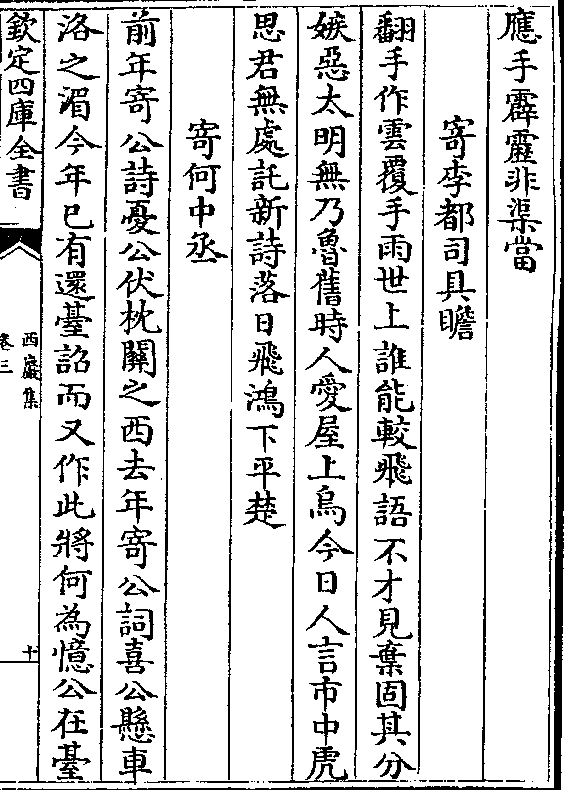 應手霹靂非渠當
寄李都司具瞻
翻手作雲覆手雨世上誰能較飛語不才見棄固其分
嫉惡太明無乃魯舊時人愛屋上烏今日人言市中虎
思君無處託新詩落日飛鴻下平楚
寄何中丞
前年寄公詩憂公伏枕關之西去年寄公詞喜公懸車
洛之湄今年已有還臺詔而又作此將何為憶公在臺
欽定四庫全書
西巖集
卷三
十